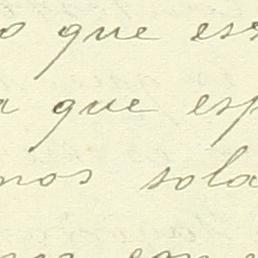 o que ess
a que esp
mos sola